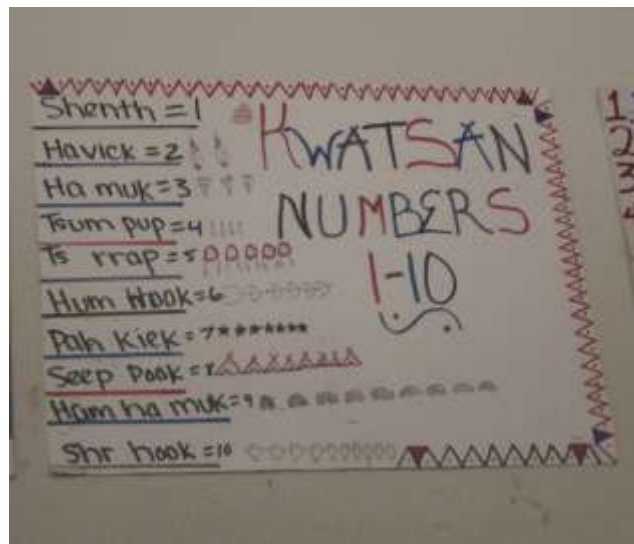 Shenth = 1
Havick = 2
Ha muk = 3
Tsum pup = 4
Ts rrap = 5
Hum Hook = 6
Pah Kiek = 7
Seep Pook = 8
Ham ha muk = 9
Shr hook = 10
KWATSAN
NUMBERS
1-10
1
2
3